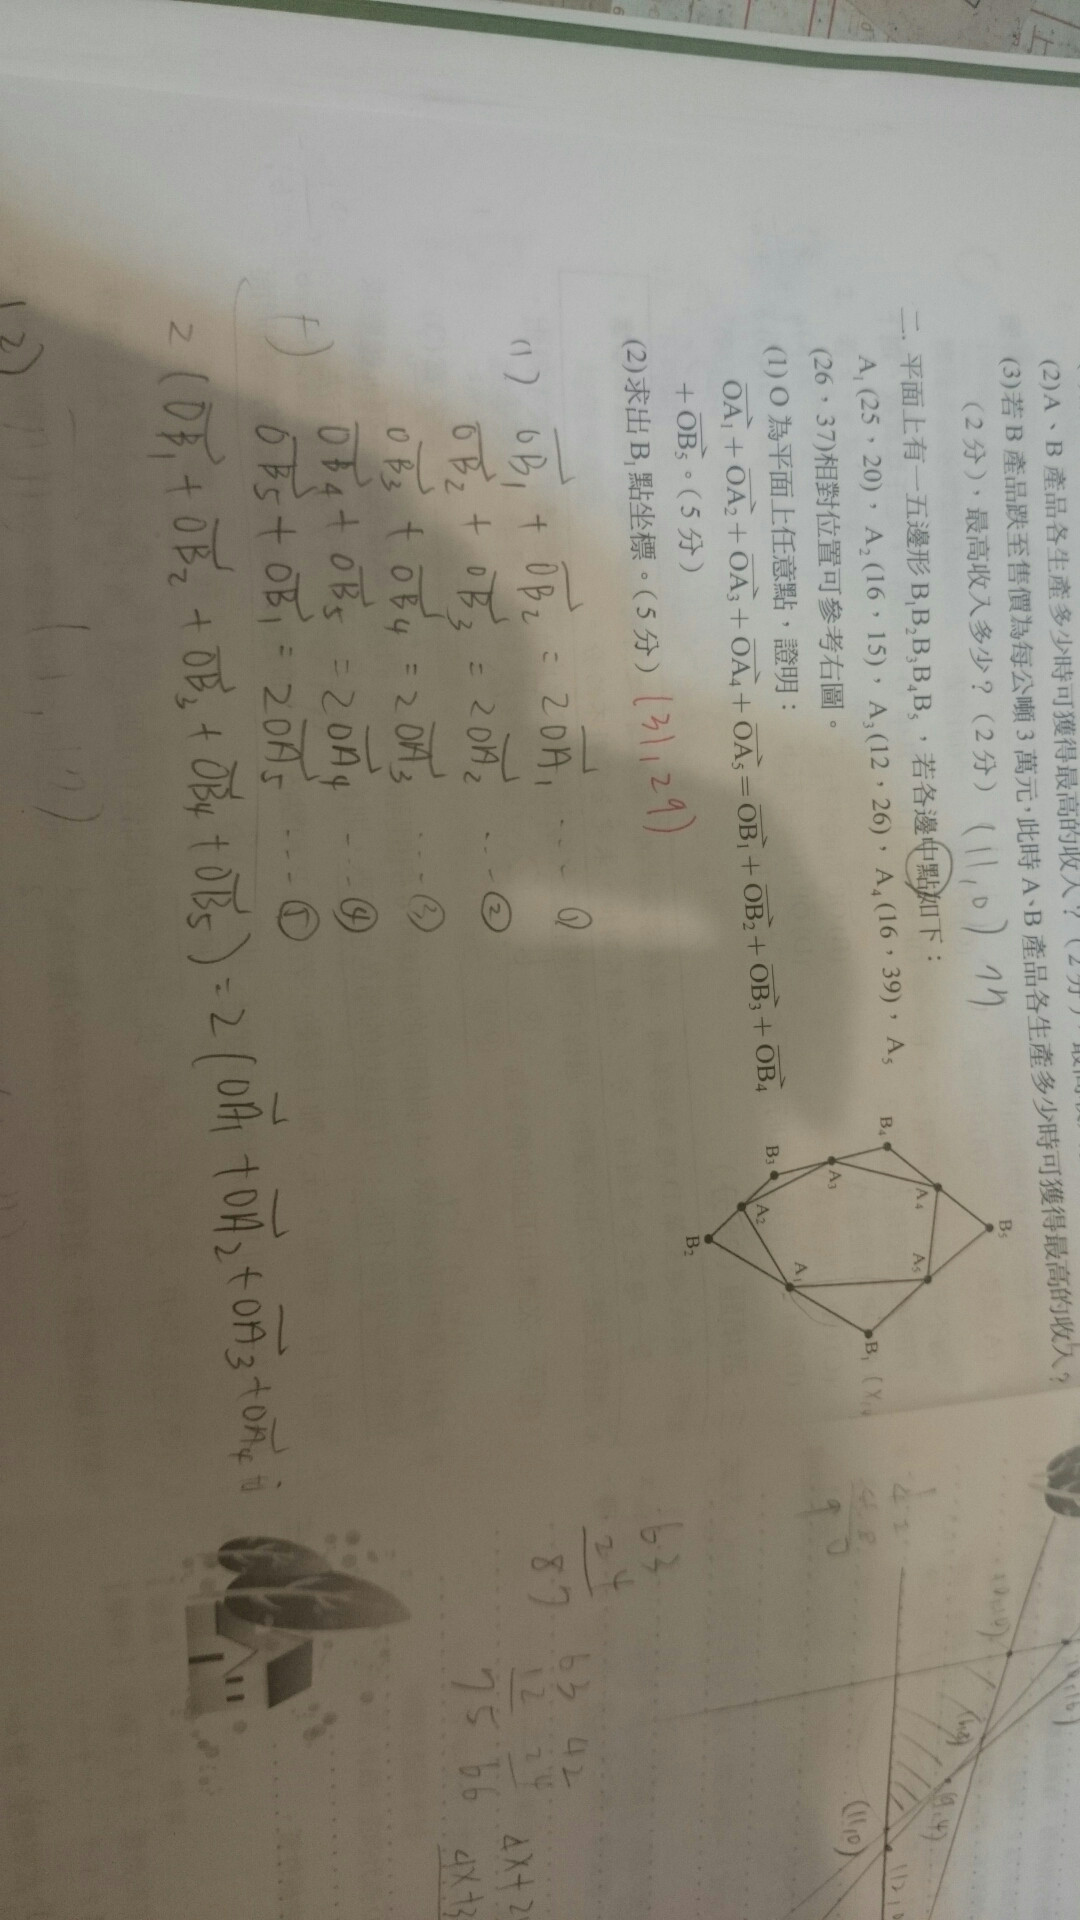 (2)A、B 產品各生產多少時可獲得最高的收入？(2分)，
(3)若 B 產品跌至售價為每公噸 3 萬元，此時 A、B 產品各生產多少時可獲得最高的收入？
(2分)，最高收入多少？(2分) (11,0)
二. 平面上有一五邊形 B₁B₂B₃B₄B₅，若各邊中點如下：
A₁(25，20)，A₂(16，15)，A₃(12，26)，A₄(16，39)，A₅
(26，37)相對位置可參考右圖。
(1)O 為平面上任意點，證明：
OA₁+OA₂+OA₃+OA₄+OA₅=OB₁+OB₂+OB₃+OB₄
+OB₅。(5分)
(2)求出 B₁點坐標。(5分) (31,29)
B₅
A₄
A₅
B₄
A₃
B₁
B₃
A₂
A₁
B₂
(1) OB₁ + OB₂ = 2OA₁ ... ①
OB₂ + OB₃ = 2OA₂ ... ②
OB₃ + OB₄ = 2OA₃ ... ③
OB₄ + OB₅ = 2OA₄ ... ④
+) OB₅ + OB₁ = 2OA₅ ... ⑤
2(OB₁ + OB₂ + OB₃ + OB₄ + OB₅) = 2(OA₁ + OA₂ + OA₃ + OA₄
(2)
42
48
90
63
24
87
63
12
75
42
24
66
4X+2
4X+3
(9,4)
(11,0)